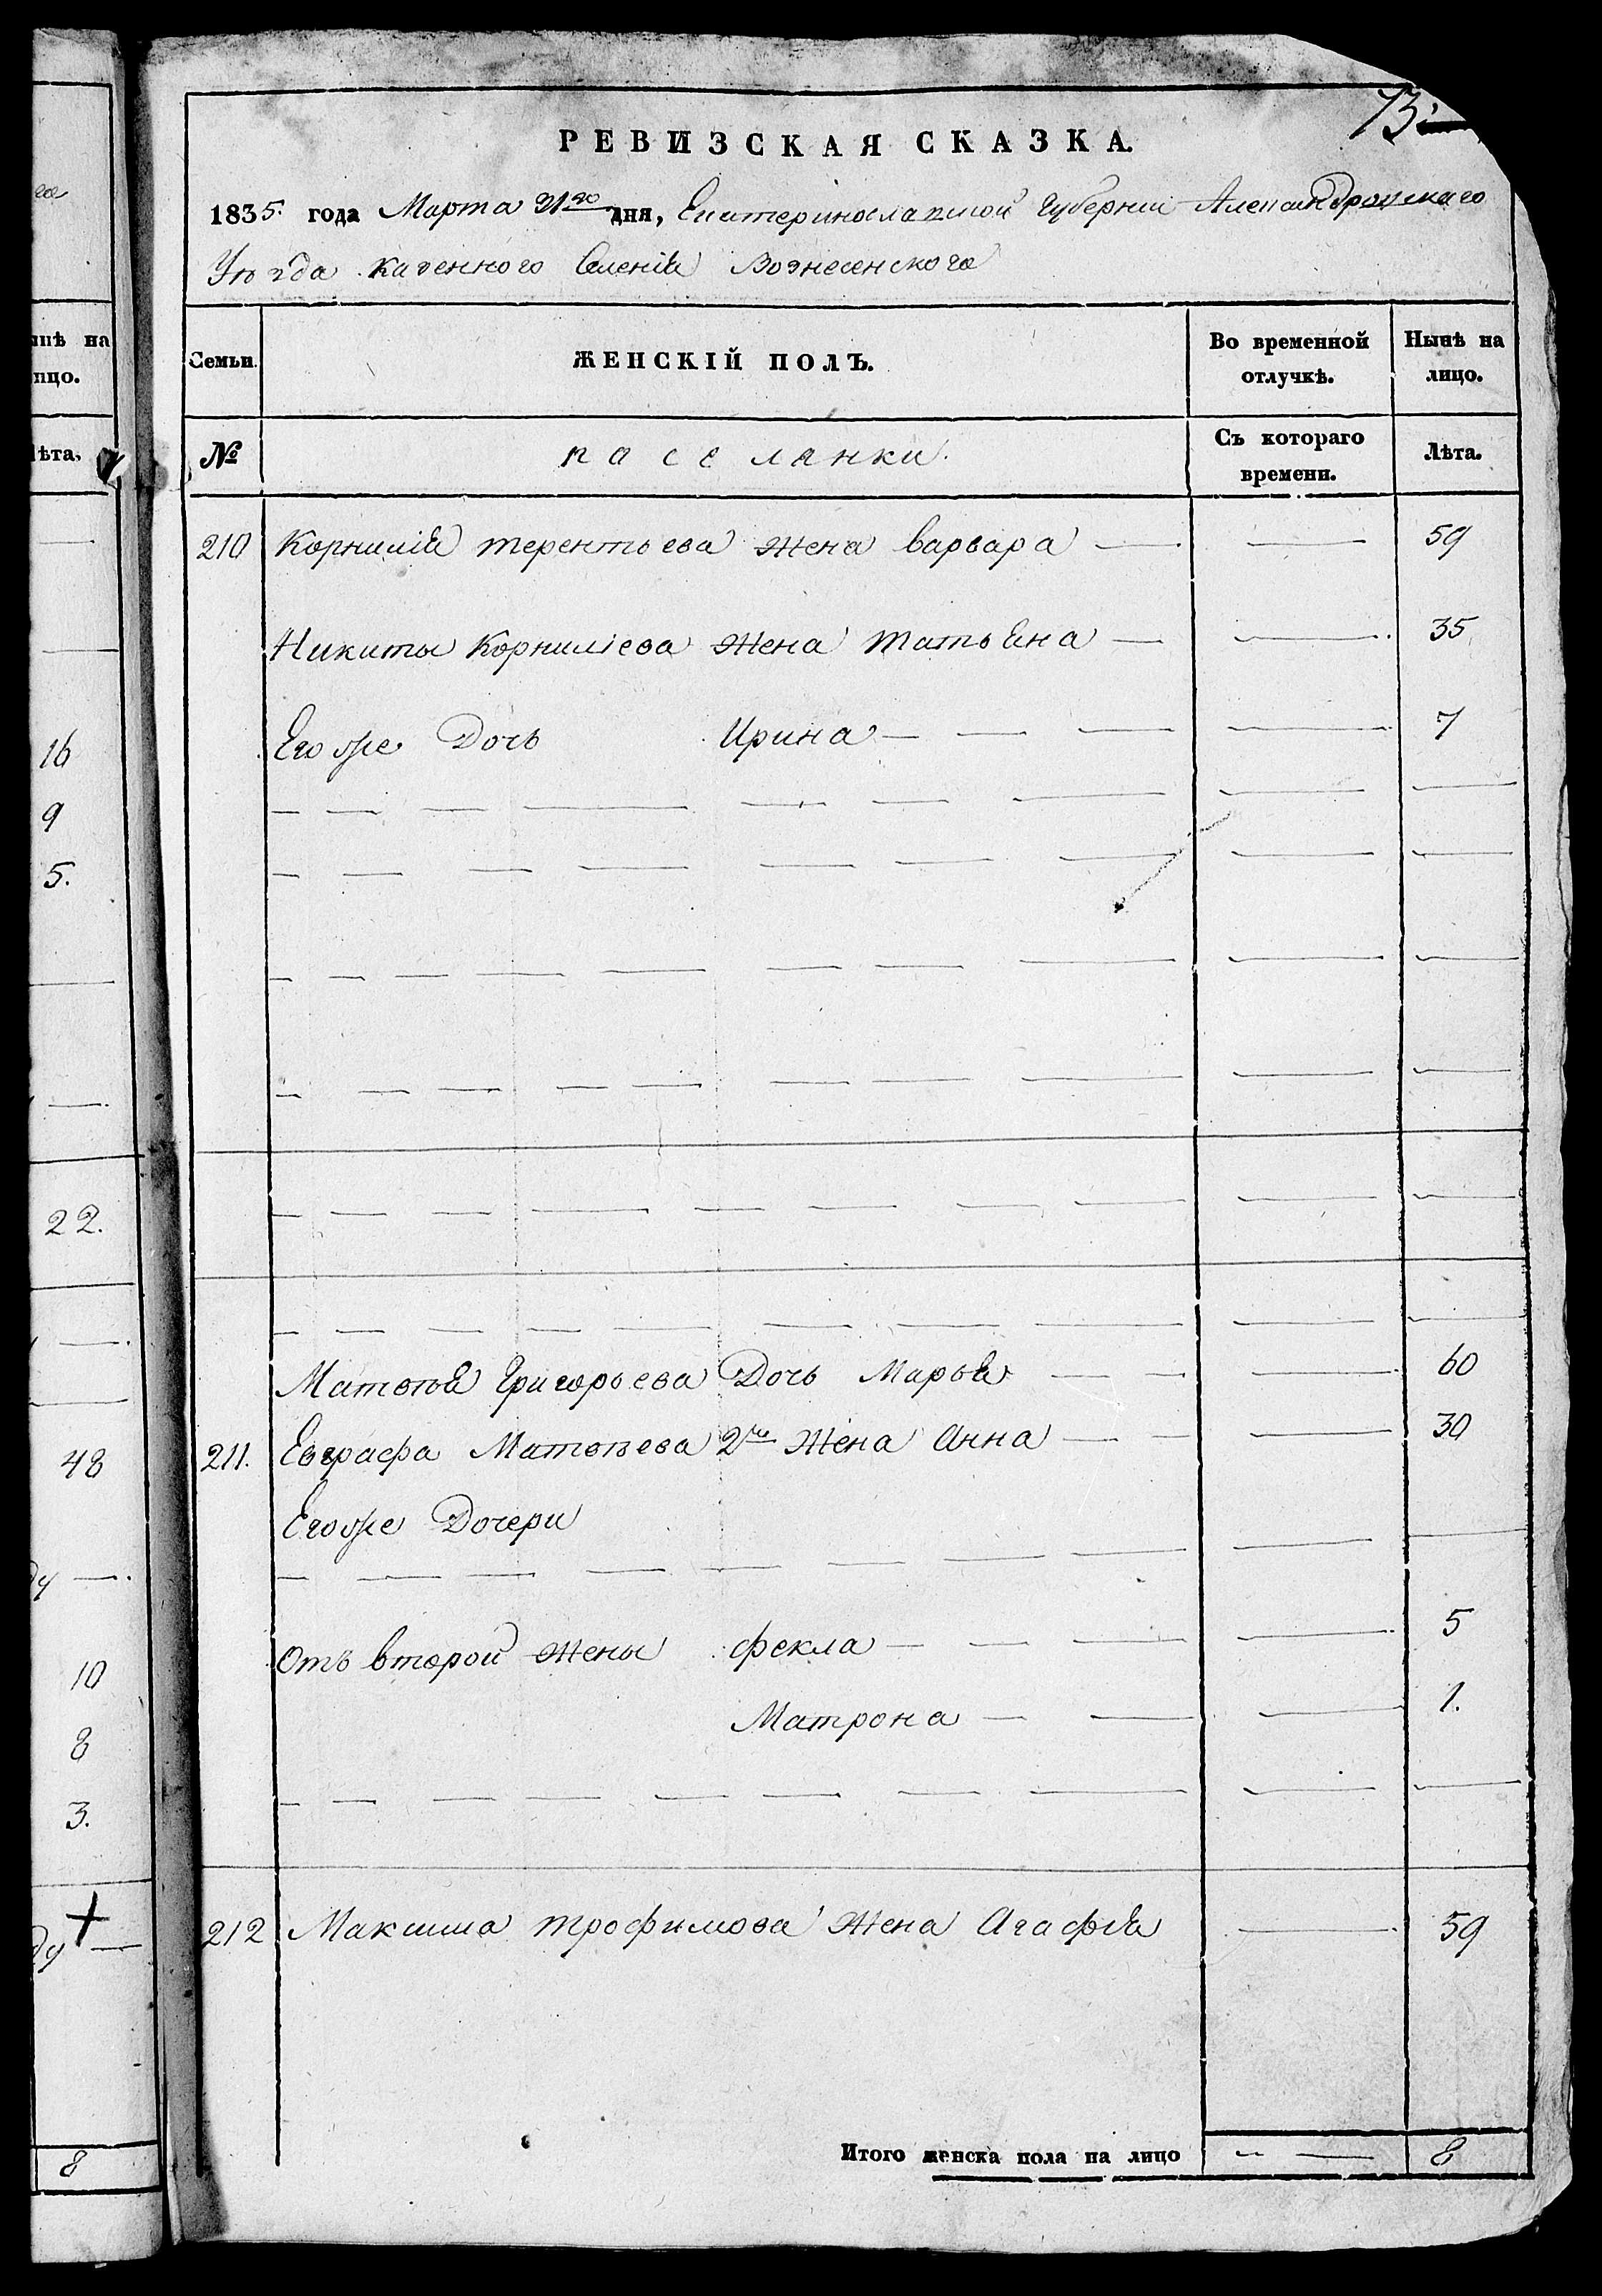 73.
РЕВИЗСКАЯ СКАЗКА.
1835. года Марта 31го дня, Екатеринославской Губернии Александровскаго
Уѣзда казенного Селенія Вознесенского
Семьи. ЖЕНСКІЙ ПОЛЪ. Во временной отлучкѣ. Нынѣ на лицо.
№ паселянки. Съ котораго времени. Лѣта.
210 Корнилія терентьева жена варвара — — 59
Никиты Корниліева жена татьяна — — 35
Егоже Дочь Ирина — — — — 7
Матвѣя Григорьева Дочь Марья — — — 60
211. Евграфа Матвѣева 2я жена Анна — — — 30
Егоже Дочери
Отъ второй жены фекла — — — — 5
Матрона — — — 1.
212 Максима трофимова жена Агафія — 59
Итого женска пола на лицо — — 8
го
нѣ на
лицо.
Лѣта.
16
9
5.
22.
48
ду —.
10
8
3.
ду —
8